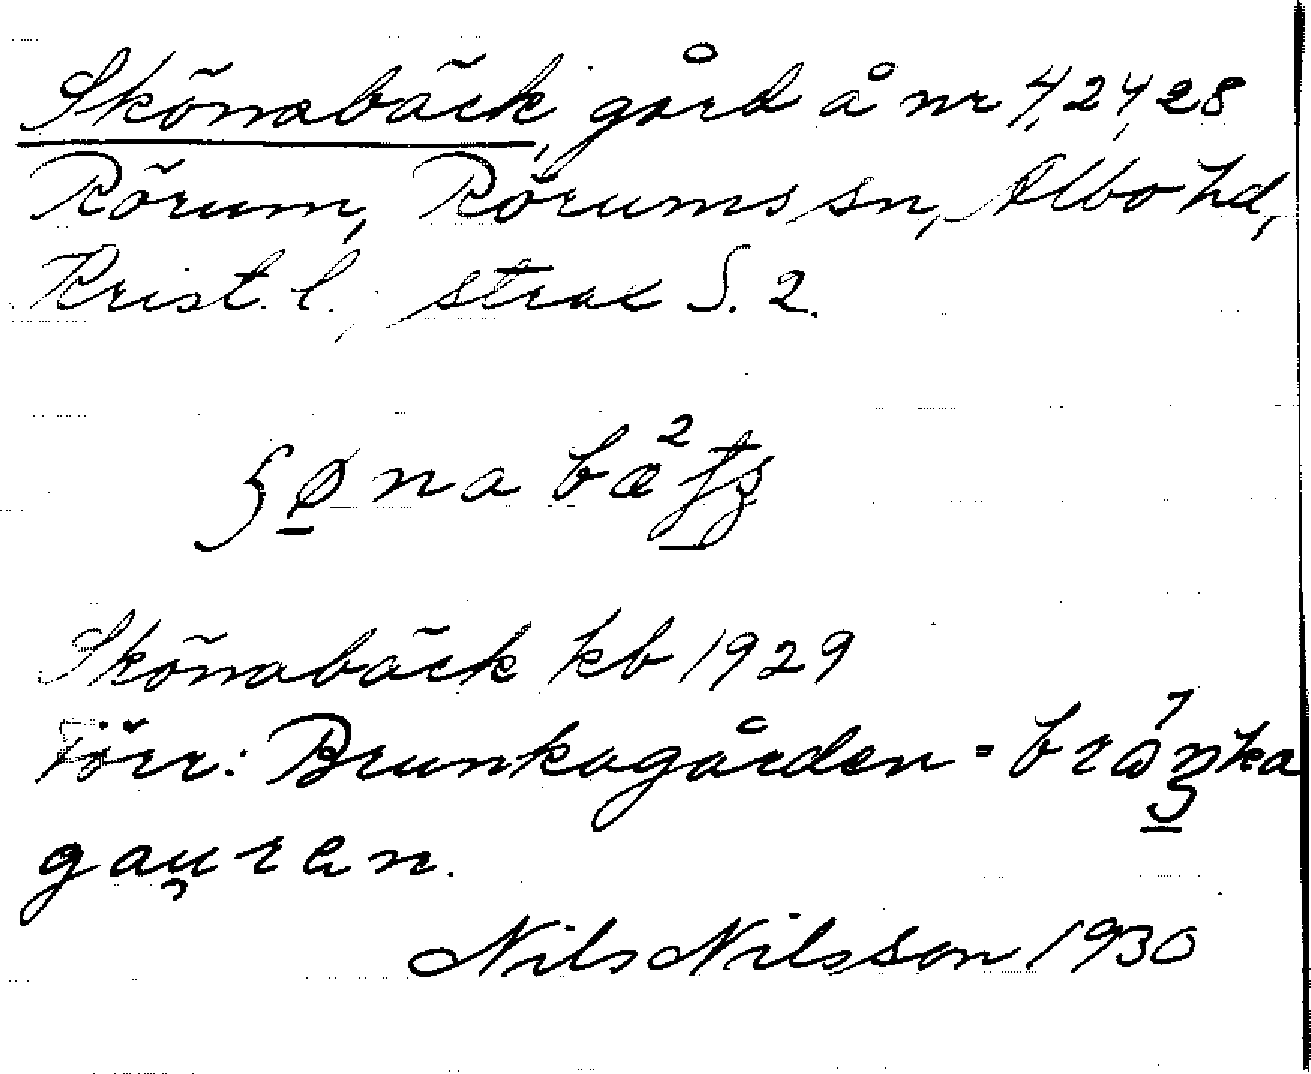 Skönabäck, gård å nr 4, 24, 28
Rörum, Rörums sn, Albo hd,
Krist. l., strax S. 2.
Skönabäck kb 1929
Förr: Brunkagården = 
gauren.
Nils Nilsson 1930